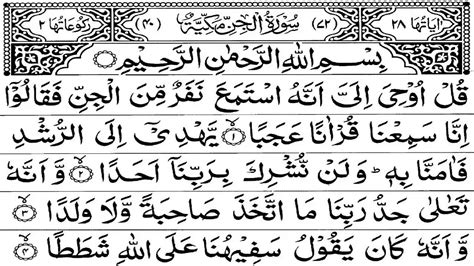 اٰیَاتُہَا ٢٨ (٧٢) سُوْرَۃُ الْجِنِّ مَکِّیَّۃٌ (٤٠) رُکُوْعَاتُہَا ٢
بِسْمِ اللّٰهِ الرَّحْمٰنِ الرَّحِیْمِ
قُلْ اُوْحِیَ اِلَیَّ اَنَّهُ اسْتَمَعَ نَفَرٌ مِّنَ الْجِنِّ فَقَالُوْۤا
اِنَّا سَمِعْنَا قُرْاٰنًا عَجَبًا ۙ۱ یَّهْدِیْۤ اِلَی الرُّشْدِ
فَاٰمَنَّا بِهٖ ؕ وَلَنْ نُّشْرِكَ بِرَبِّنَاۤ اَحَدًا ۙ۲ وَّ اَنَّهٗ
تَعٰلٰی جَدُّ رَبِّنَا مَا اتَّخَذَ صَاحِبَةً وَّلَا وَلَدًا ۙ۳
وَّ اَنَّهٗ كَانَ یَقُوْلُ سَفِیْهُنَا عَلَی اللّٰهِ شَطَطًا ۙ۴